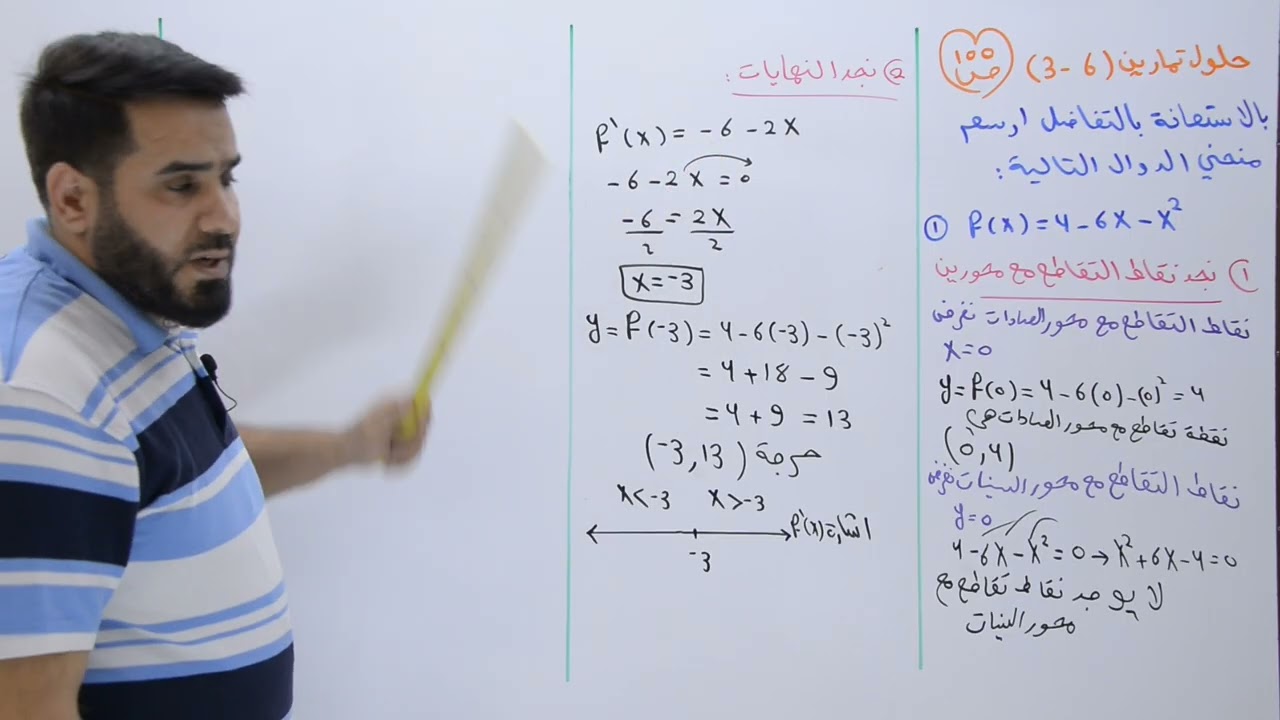 حلول تمارين (6 - 3)
100
ص
بالاستعانة بالتفاضل ارسم
منحني الدوال التالية:
① f(x) = 4 - 6x - x²
1) نجد نقاط التقاطع مع محورين
نقاط التقاطع مع محور الصادات نفرض
x = 0
y = f(0) = 4 - 6(0) - (0)² = 4
نقطة تقاطع مع محور الصادات هي
(0, 4)
نقاط التقاطع مع محور السينات نفرض
y = 0
4 - 6x - x² = 0 → x² + 6x - 4 = 0
لا يوجد نقاط تقاطع مع
محور السينات
② نجد النهايات:
f'(x) = -6 - 2x
-6 - 2x = 0
-6/2 = 2x/2
x = -3
y = f(-3) = 4 - 6(-3) - (-3)²
= 4 + 18 - 9
= 4 + 9 = 13
(-3, 13) حرجة
x < -3 x > -3
اشارة f'(x)
-3